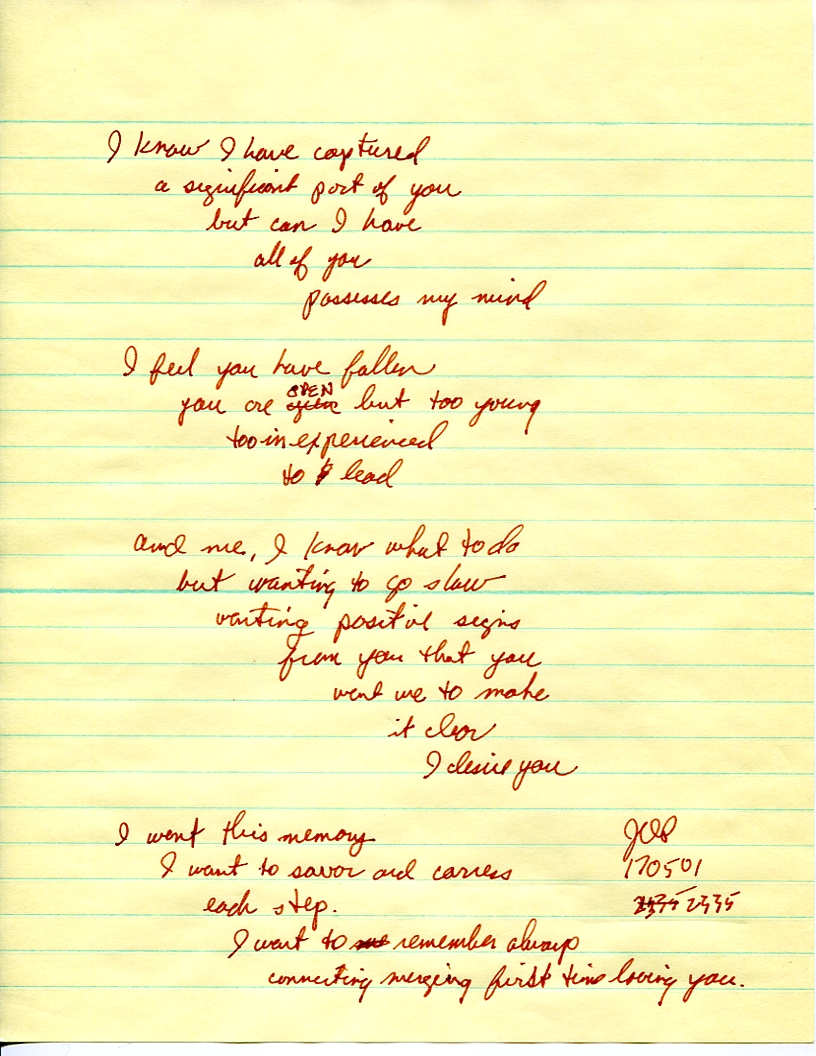 I know I have captured
a significant part of you
but can I have
all of you
possesses my mind
I feel you have fallen
you are OPEN but too young
too inexperienced
to lead
and me, I know what to do
but wanting to go slow
wanting positive signs
from you that you
want me to make
it clear
I desire you
I want this memory
I want to savor and carress
each step.
I want to remember always
connecting merging first time loving you.
170501
2335